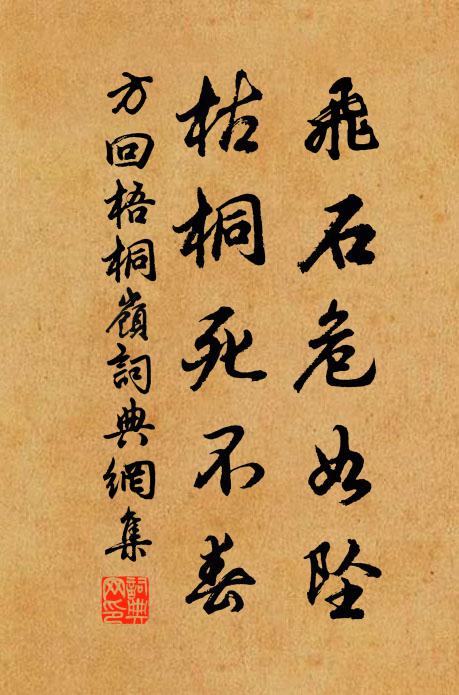 飛石危如墜
枯桐死不春
方回梧桐嶺詞典網集
詞典
网印